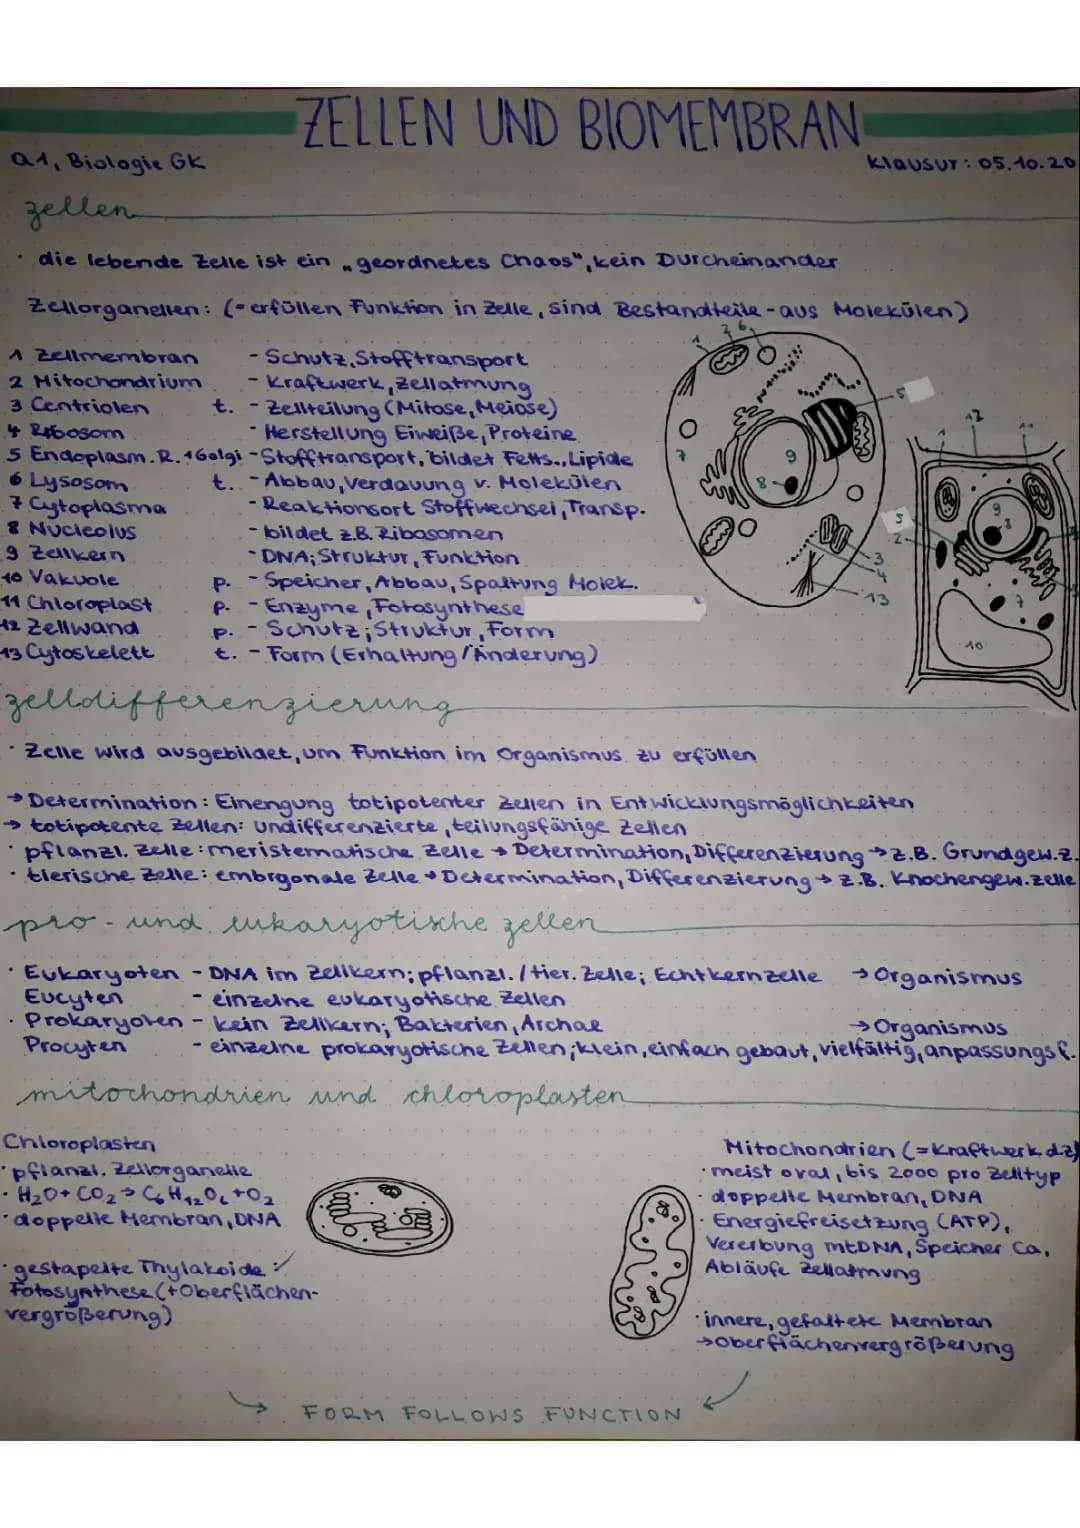 ZELLEN UND BIOMEMBRAN
Q1, Biologie GK
Klausur: 05.10.20
zellen
· die lebende Zelle ist ein „geordnetes Chaos", kein Durcheinander
Zellorganellen: (= erfüllen Funktion in Zelle, sind Bestandteile - aus Molekülen)
1 Zellmembran - Schutz, Stofftransport
2 Mitochondrium - Kraftwerk, Zellatmung
3 Centriolen t. - Zellteilung (Mitose, Meiose)
4 Ribosom - Herstellung Eiweiße, Proteine
5 Endoplasm. R. + Golgi - Stofftransport, bildet Fetts., Lipide
6 Lysosom t. - Abbau, Verdauung v. Molekülen
7 Cytoplasma - Reaktionsort Stoffwechsel, Transp.
8 Nucleolus - bildet z.B. Ribosomen
9 Zellkern - DNA; Struktur, Funktion
10 Vakuole p. - Speicher, Abbau, Spaltung Molek.
11 Chloroplast p. - Enzyme, Fotosynthese
12 Zellwand p. - Schutz; Struktur, Form
13 Cytoskelett t. - Form (Erhaltung/Änderung)
1 2 6
5
7
8
9
3
4
13
1 12 11
9
8
5
2
7
10
zelldifferenzierung
· Zelle wird ausgebildet, um Funktion im Organismus zu erfüllen
→ Determination: Einengung totipotenter Zellen in Entwicklungsmöglichkeiten
→ totipotente Zellen: undifferenzierte, teilungsfähige Zellen
· pflanzl. Zelle: meristematische Zelle → Determination, Differenzierung → z.B. Grundgew.z.
· tierische Zelle: embryonale Zelle → Determination, Differenzierung → z.B. Knochengew.zelle
pro- und eukaryotische zellen
· Eukaryoten - DNA im Zellkern; pflanzl./tier. Zelle; Echtkernzelle → Organismus
Eucyten - einzelne eukaryotische Zellen
· Prokaryoten - kein Zellkern; Bakterien, Archae → Organismus
Procyten - einzelne prokaryotische Zellen; klein, einfach gebaut, vielfältig, anpassungsf.
mitochondrien und chloroplasten
Chloroplasten
· pflanzl. Zellorganelle
· H2O + CO2 → C6H12O6 + O2
· doppelte Membran, DNA
· gestapelte Thylakoide:
Fotosynthese (+Oberflächen-
vergrößerung)
Mitochondrien (= Kraftwerk d.Z)
· meist oval, bis 2000 pro Zelltyp
· doppelte Membran, DNA
· Energiefreisetzung (ATP),
Vererbung mtDNA, Speicher Ca,
Abläufe Zellatmung
· innere, gefaltete Membran
→ Oberflächenvergrößerung
FORM FOLLOWS FUNCTION